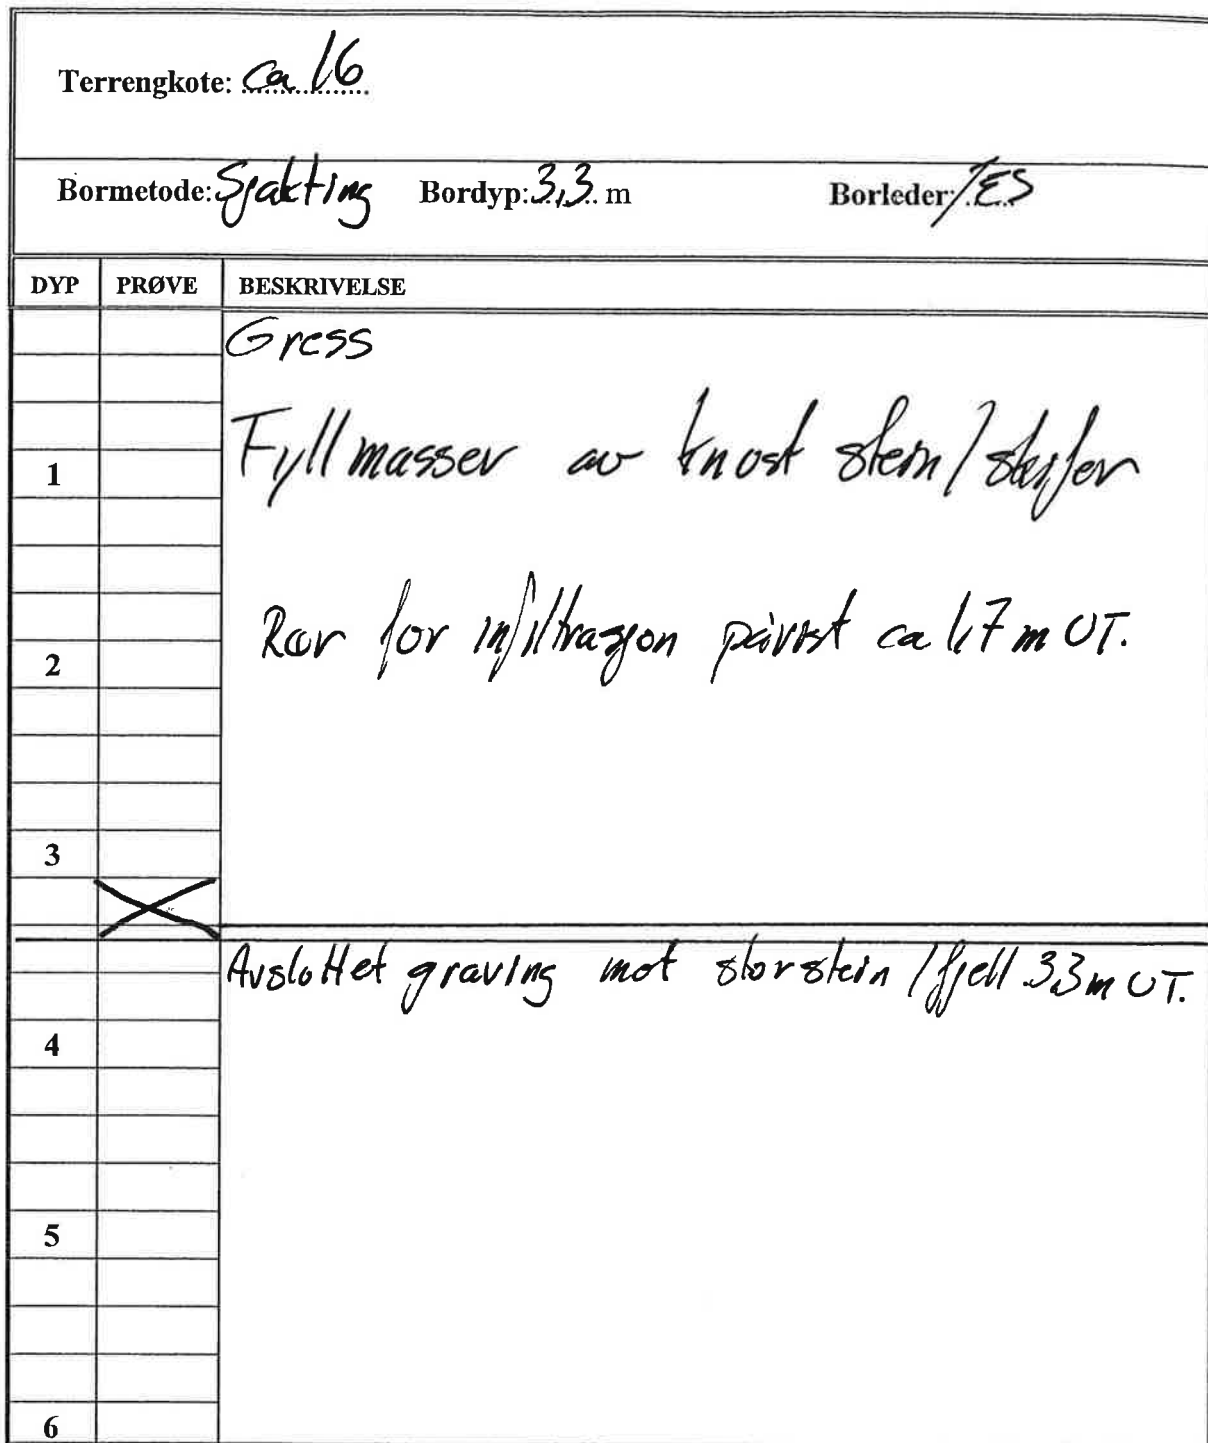 Terrengkote: Ca 16
Bormetode: Sjakting Bordyp: 3,3 m Borleder: TES
DYP PRØVE BESKRIVELSE
Gress
Fyllmasser av knust stein/skifer
1
Rør for infiltrasjon påvist ca 1,7 m UT.
2
3
Avsluttet graving mot storstein/fjell 3,3 m UT.
4
5
6